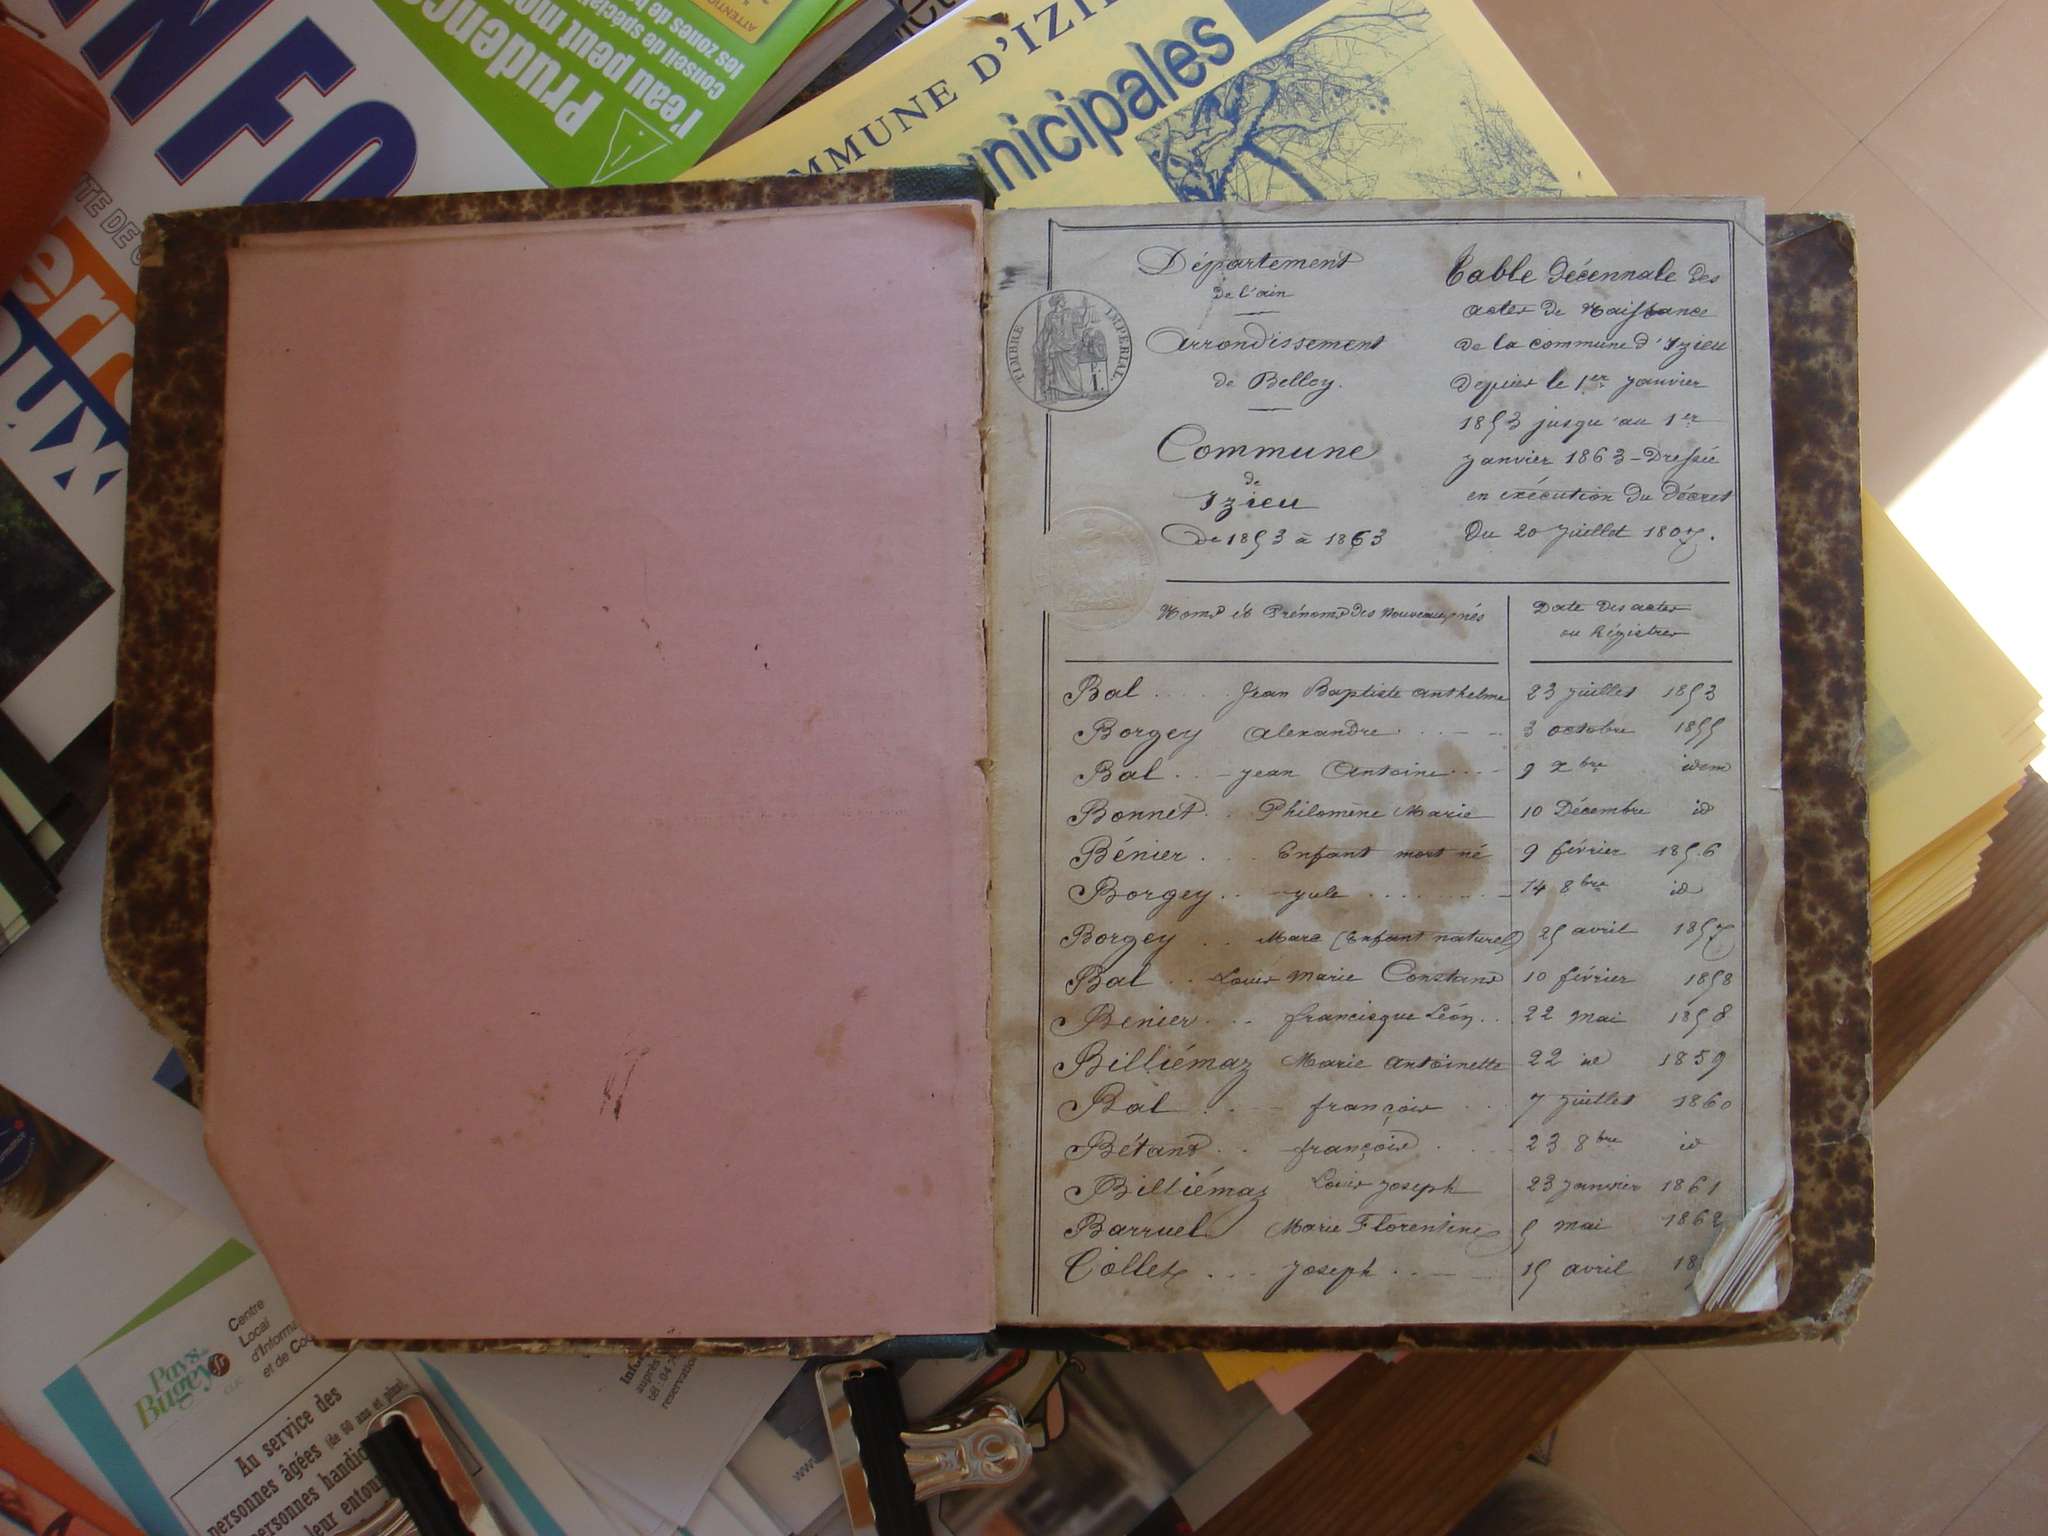 INFO
Prudence
l'eau peut mo
conseil de spécial
les zones de b
ATTENTIO
COMMUNE D'IZIE
unicipales
TIMBRE IMPERIAL.
Département
de l'ain
Arrondissement
de Belley.
Commune
de
Izieu
De 1853 à 1863
Table Décennale des
actes de Naissance
de la commune d'Izieu
depuis le 1er janvier
1853 jusqu'au 1er
janvier 1863 - Dressée
en exécution du Décret
Du 20 juillet 1807.
Noms et Prénoms des Nouveaux nés
Date des actes
ou Régistres
Bal Jean Baptiste anthelme 23 juillet 1853
Borgey alexandre 3 octobre 1855
Bal Jean Antoine 9 xbre idem
Bonnet Philomène Marie 10 Décembre id
Bénier Enfant mort né 9 février 1856
Borgey jule 14 8bre id
Borgey Marc (Enfant naturel) 25 avril 1857
Bal Louis Marie Constant 10 février 1858
Benier francisque Léon 22 mai 1858
Billiémaz Marie Antoinette 22 id 1859
Bal françois 7 juillet 1860
Bétant françois 23 8bre id
Billiémaz Louis Joseph 23 janvier 1861
Barruel Marie Florentine 5 mai 1862
Collet Joseph 15 avril 18
Pays du
Bugey
CLIC
Centre
Local
d'Informa
et de Coo
Au service des
personnes âgées (de 60 ans et plus)
personnes handic
leur entou
Info
auprès
tél : 04 7
reservation
www